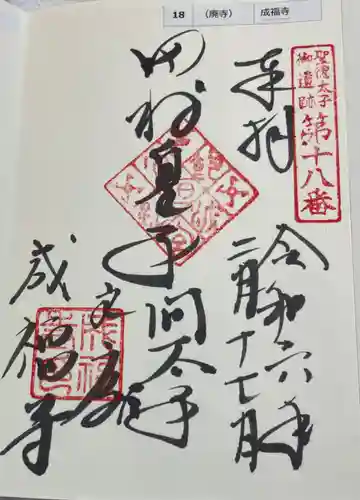 18 （廃寺） 成福寺
聖徳太子
御遺跡
第十八番
奉拝
令和六年
二月十七日
田村皇子問太子
成福寺